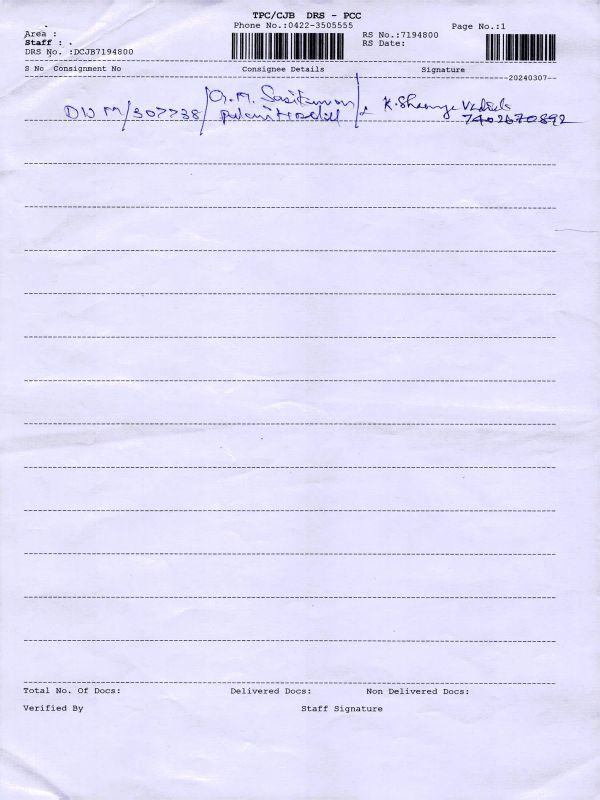 TPC/CJB DRS - PCC
Phone No.:0422-3505555
Page No.:1
Area :
Staff : .
RS No.:7194800
RS Date:
DRS No. :DCJB7194800
S No Consignment No Consignee Details Signature
20240307
DNM/307738/ G.M. / K.
7402670892
Total No. Of Docs: Delivered Docs: Non Delivered Docs:
Verified By Staff Signature